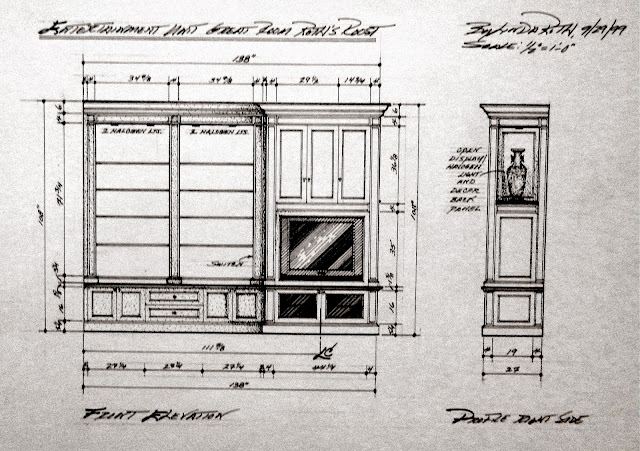 Entertainment Unit Great Room Roth's Roost
By Linda Roth, 9/29/99
Scale: 1/2" = 1'-0"
138"
34 7/8 34 7/8 29 1/2 14 3/4
2 Halogen Lts. 2 Halogen Lts.
Open
Display/
Halogen
Light
And
Decor
Back
Panel
108"
35
Switch
16
16
111 7/8
CL
27 1/4 27 1/4 27 1/4 44 1/4
138"
19
27
Front Elevation
Profile Right Side